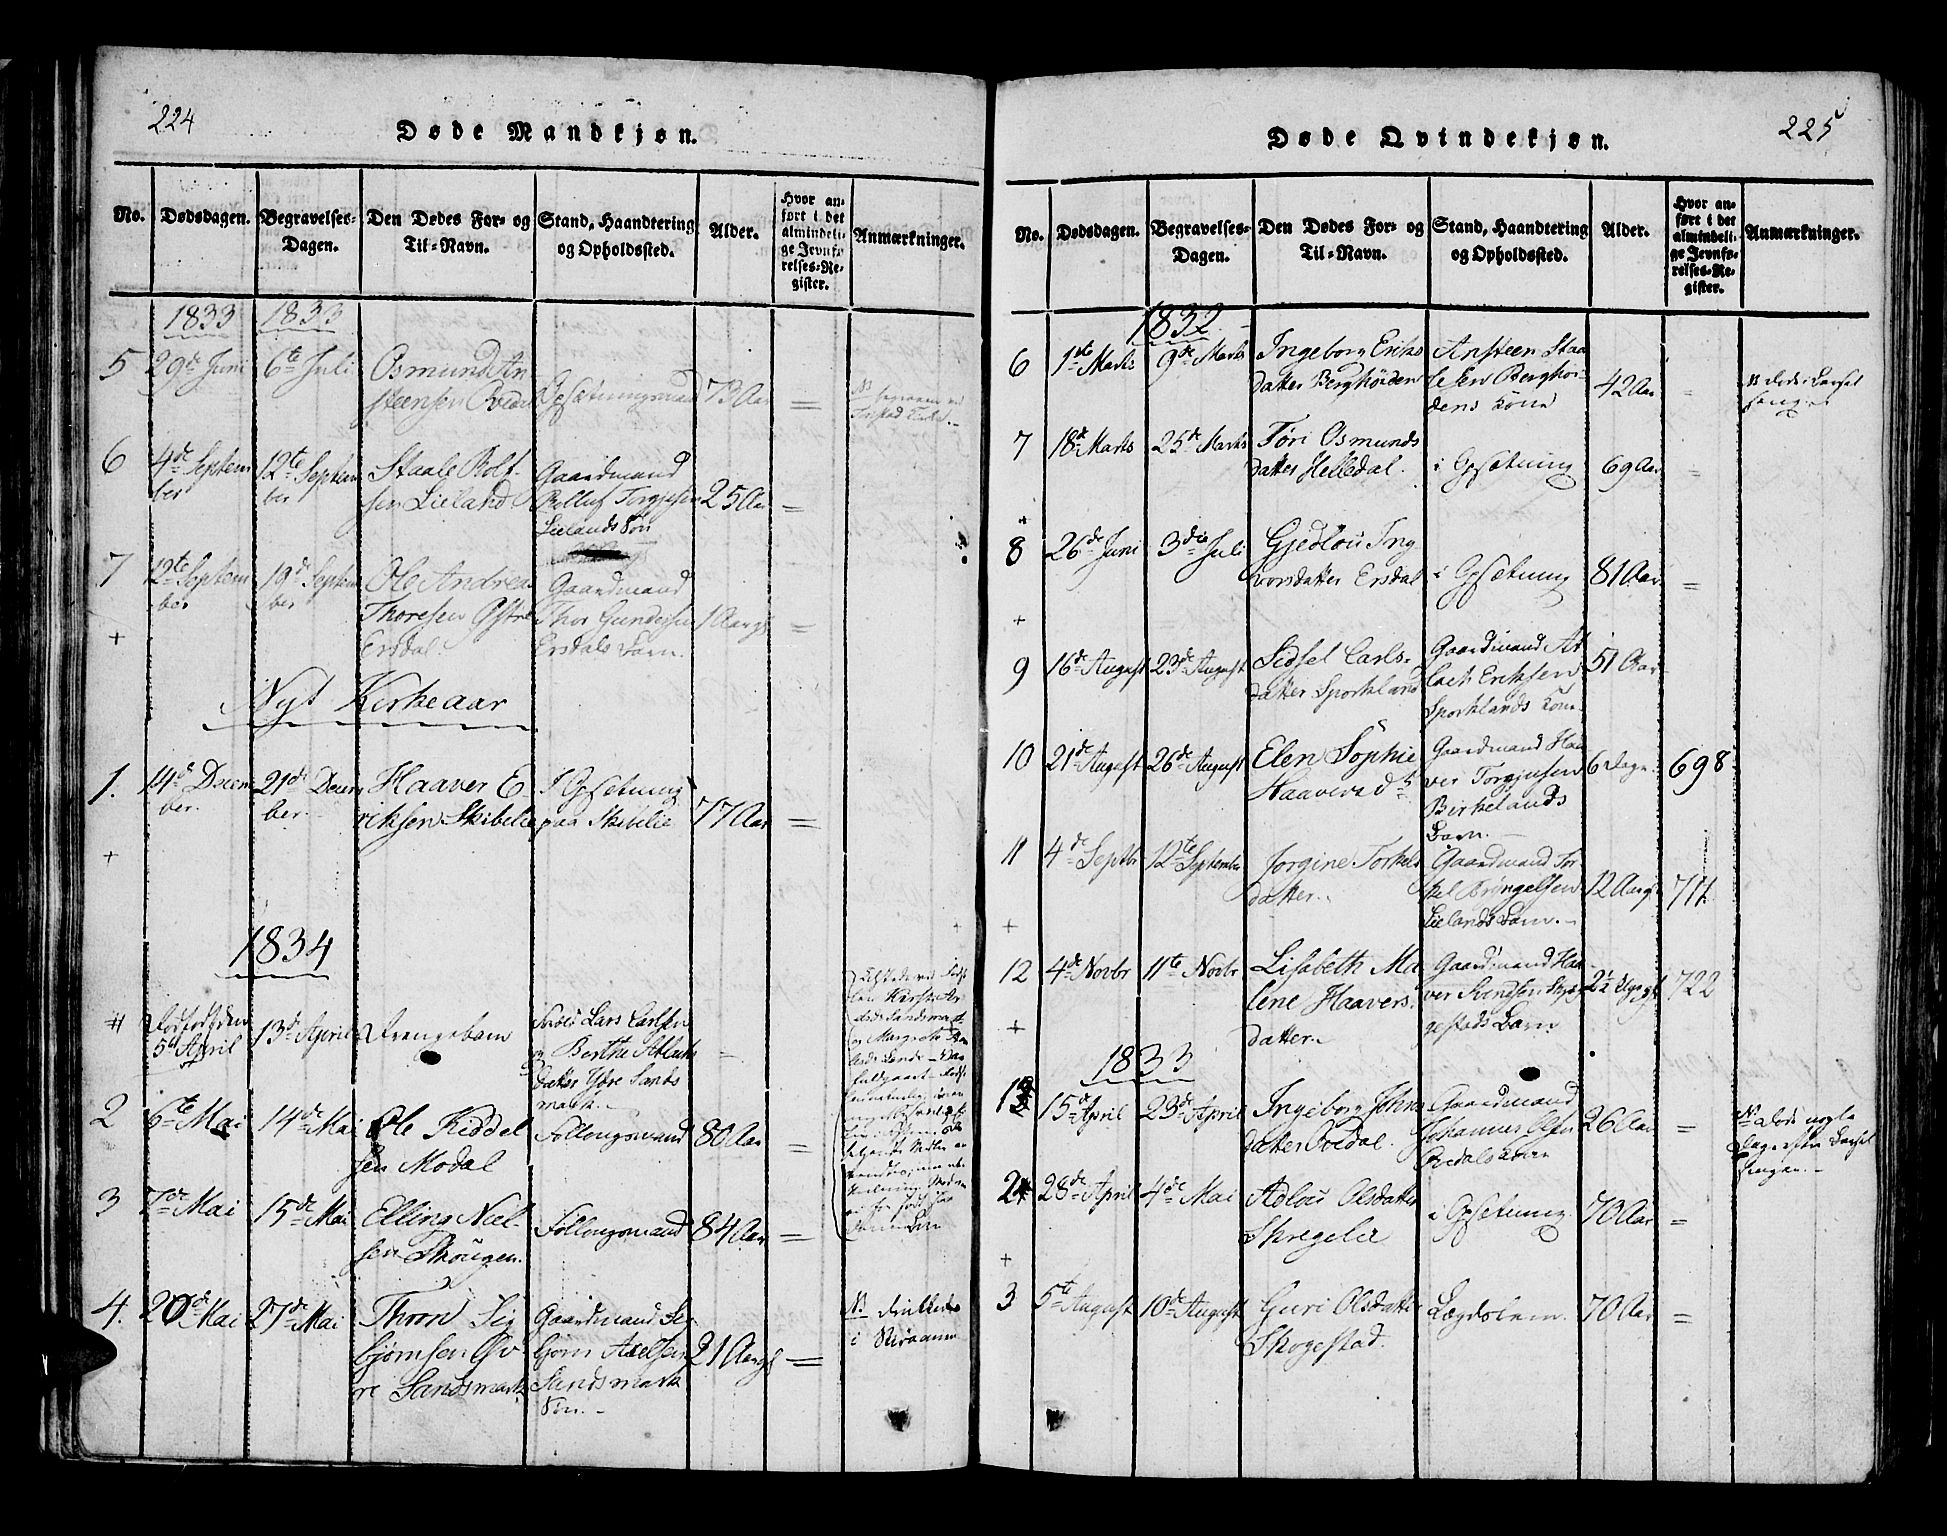 224
Døde Mandkjøn.
No.
Dødsdagen.
Begravelses-
Dagen.
Den Dødes For- og
Til-Navn.
Stand, Haandtering
og Opholdssted.
Alder.
Hvor an-
ført i det
almindeli-
ge Jevnfø-
relses-Re-
gister.
Anmærkninger.
1833 1833
5 29de Juni 6te Juli Osmund An
steensen Ovedal Opsætningsmand 73 Aar =
6 4de Septem
ber 12te Septem
ber Staale Rolf-
sen Lieland Gaardmand
Rolluf Torgjusen
Lielands Søn 25 Aar =
7 12te Septem
ber 19de Septem
ber Ole Andreas
Thoresen Østre
Ersdal. Gaardmand
Thor Gundersen
Ersdals Barn. 1 Aargl =
+
Nyt Kirkeaar
1. 14de Decem
ber. 21de Decem
ber. Haaver E-
riksen Skibelie I Opsætning
paa Skibelie 77 Aar =
+
1834
# Dødfødt den
5te April 13de April Drengebarn Lars Carlsen
og Berthe Atlaks
datter Ydre Sands
mark.
2 6te Mai 14de Mai Ole Keddel
sen Modal Follougsmand 80 Aar =
3 7de Mai 15de Mai Elling Nils
sen Skougen. Follougsmand 84 Aar =
4. 20de Mai 27de Mai Thron Sig
bjørnsen Øv
re Sandsmark Gaardmand Si-
bjørn Axelsen
Sandsmark
Søn. 21 Aargl = NB druknede
i
225
Døde Qvindekjøn.
No.
Dødsdagen.
Begravelses-
Dagen.
Den Dødes For- og
Til-Navn.
Stand, Haandtering
og Opholdssted.
Alder.
Hvor an-
ført i det
almindeli-
ge Jevnfø-
relses-Re-
gister.
Anmærkninger.
1832
6 1ste Marts 9de Marts Ingeborg Eriks
datter Berghöiden Ansteen Staa
lesen Berghöi-
dens Kone 42 Aar = NB døde i Barsel
seng
7 18de Marts 25de Marts Töri Osmunds
datter Helledal. i Opsætning 69 Aar =
+
8 26de Juni 3die Juli Gjedlou Ing
vorsdatter Ersdal i Opsætning 81 Aar =
+
9 16de August 23de August Sidsel Carls-
datter Sporkland Gaardmand At
lack Eriksen
Sporklands Kone 51 Aar
10 21de August 26de August Elen Sophie
Haaversd tr Gaardmand Haa
ver Torgjusen
Birkelands
Barn. 6 Dage. 698
11 4de Septbr 12te September Jorgine Torkels
datter. Gaardmand Tor
kel Brÿngelsen
Lielands Barn. 12 Aargl 711
+
12 4de Novbr 11te Novbr Lisabeth Ma
lene Haavers
datter. Gaardmand Haa
ver Svendsen Skog
gestads Barn 2½ Ugegl 722
+
1833
1 15de April 23de April Ingeborg Johns
datter Ovedal. Gaardmand
Johannes Olsen
Ovedals Kone 26 Aar = NB Døde nogle
Dage efter Barsel
sengen.
2 28de April 4de Mai Adlou Olsdatter
Skregelie i Opsetning 70 Aar =
+
3 5te August 10de August Guri Olsdatter
Skogestad. Lægdslem. 70 Aar =